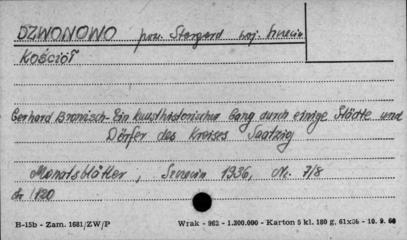 DZWONOWO pow. Stargard woj. Szczecin
KOŚCIÓŁ
Gerhard Bronisch - Ein kunsthistorischer Gang durch einige Städte und
Dörfer des Kreises Saatzig
Monatsblätter, Szczecin 1936, Nr. 7/8
B-15b - Zam. 1681/ZW/P Wrak - 962 - 1.200.000 - Karton 5 kl. 180 g, 61x86 - 10. 9. 66